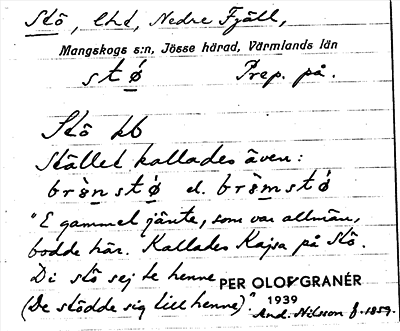 Stö, lht, Nedre Fjäll,
Mangskogs s:n, Jösse härad, Värmlands län
stø Prep. på.
Stö lb
Stället kallades även:
brä̀nstø l. brä̀mstø
"E gammel jänte, som var allmän,
bodde här. Kallades Kajsa på Stö.
Di stö sej te henne PER OLOF GRANÉR
(De stödde sig till henne)." 1939 And. Nilsson f. 1859.